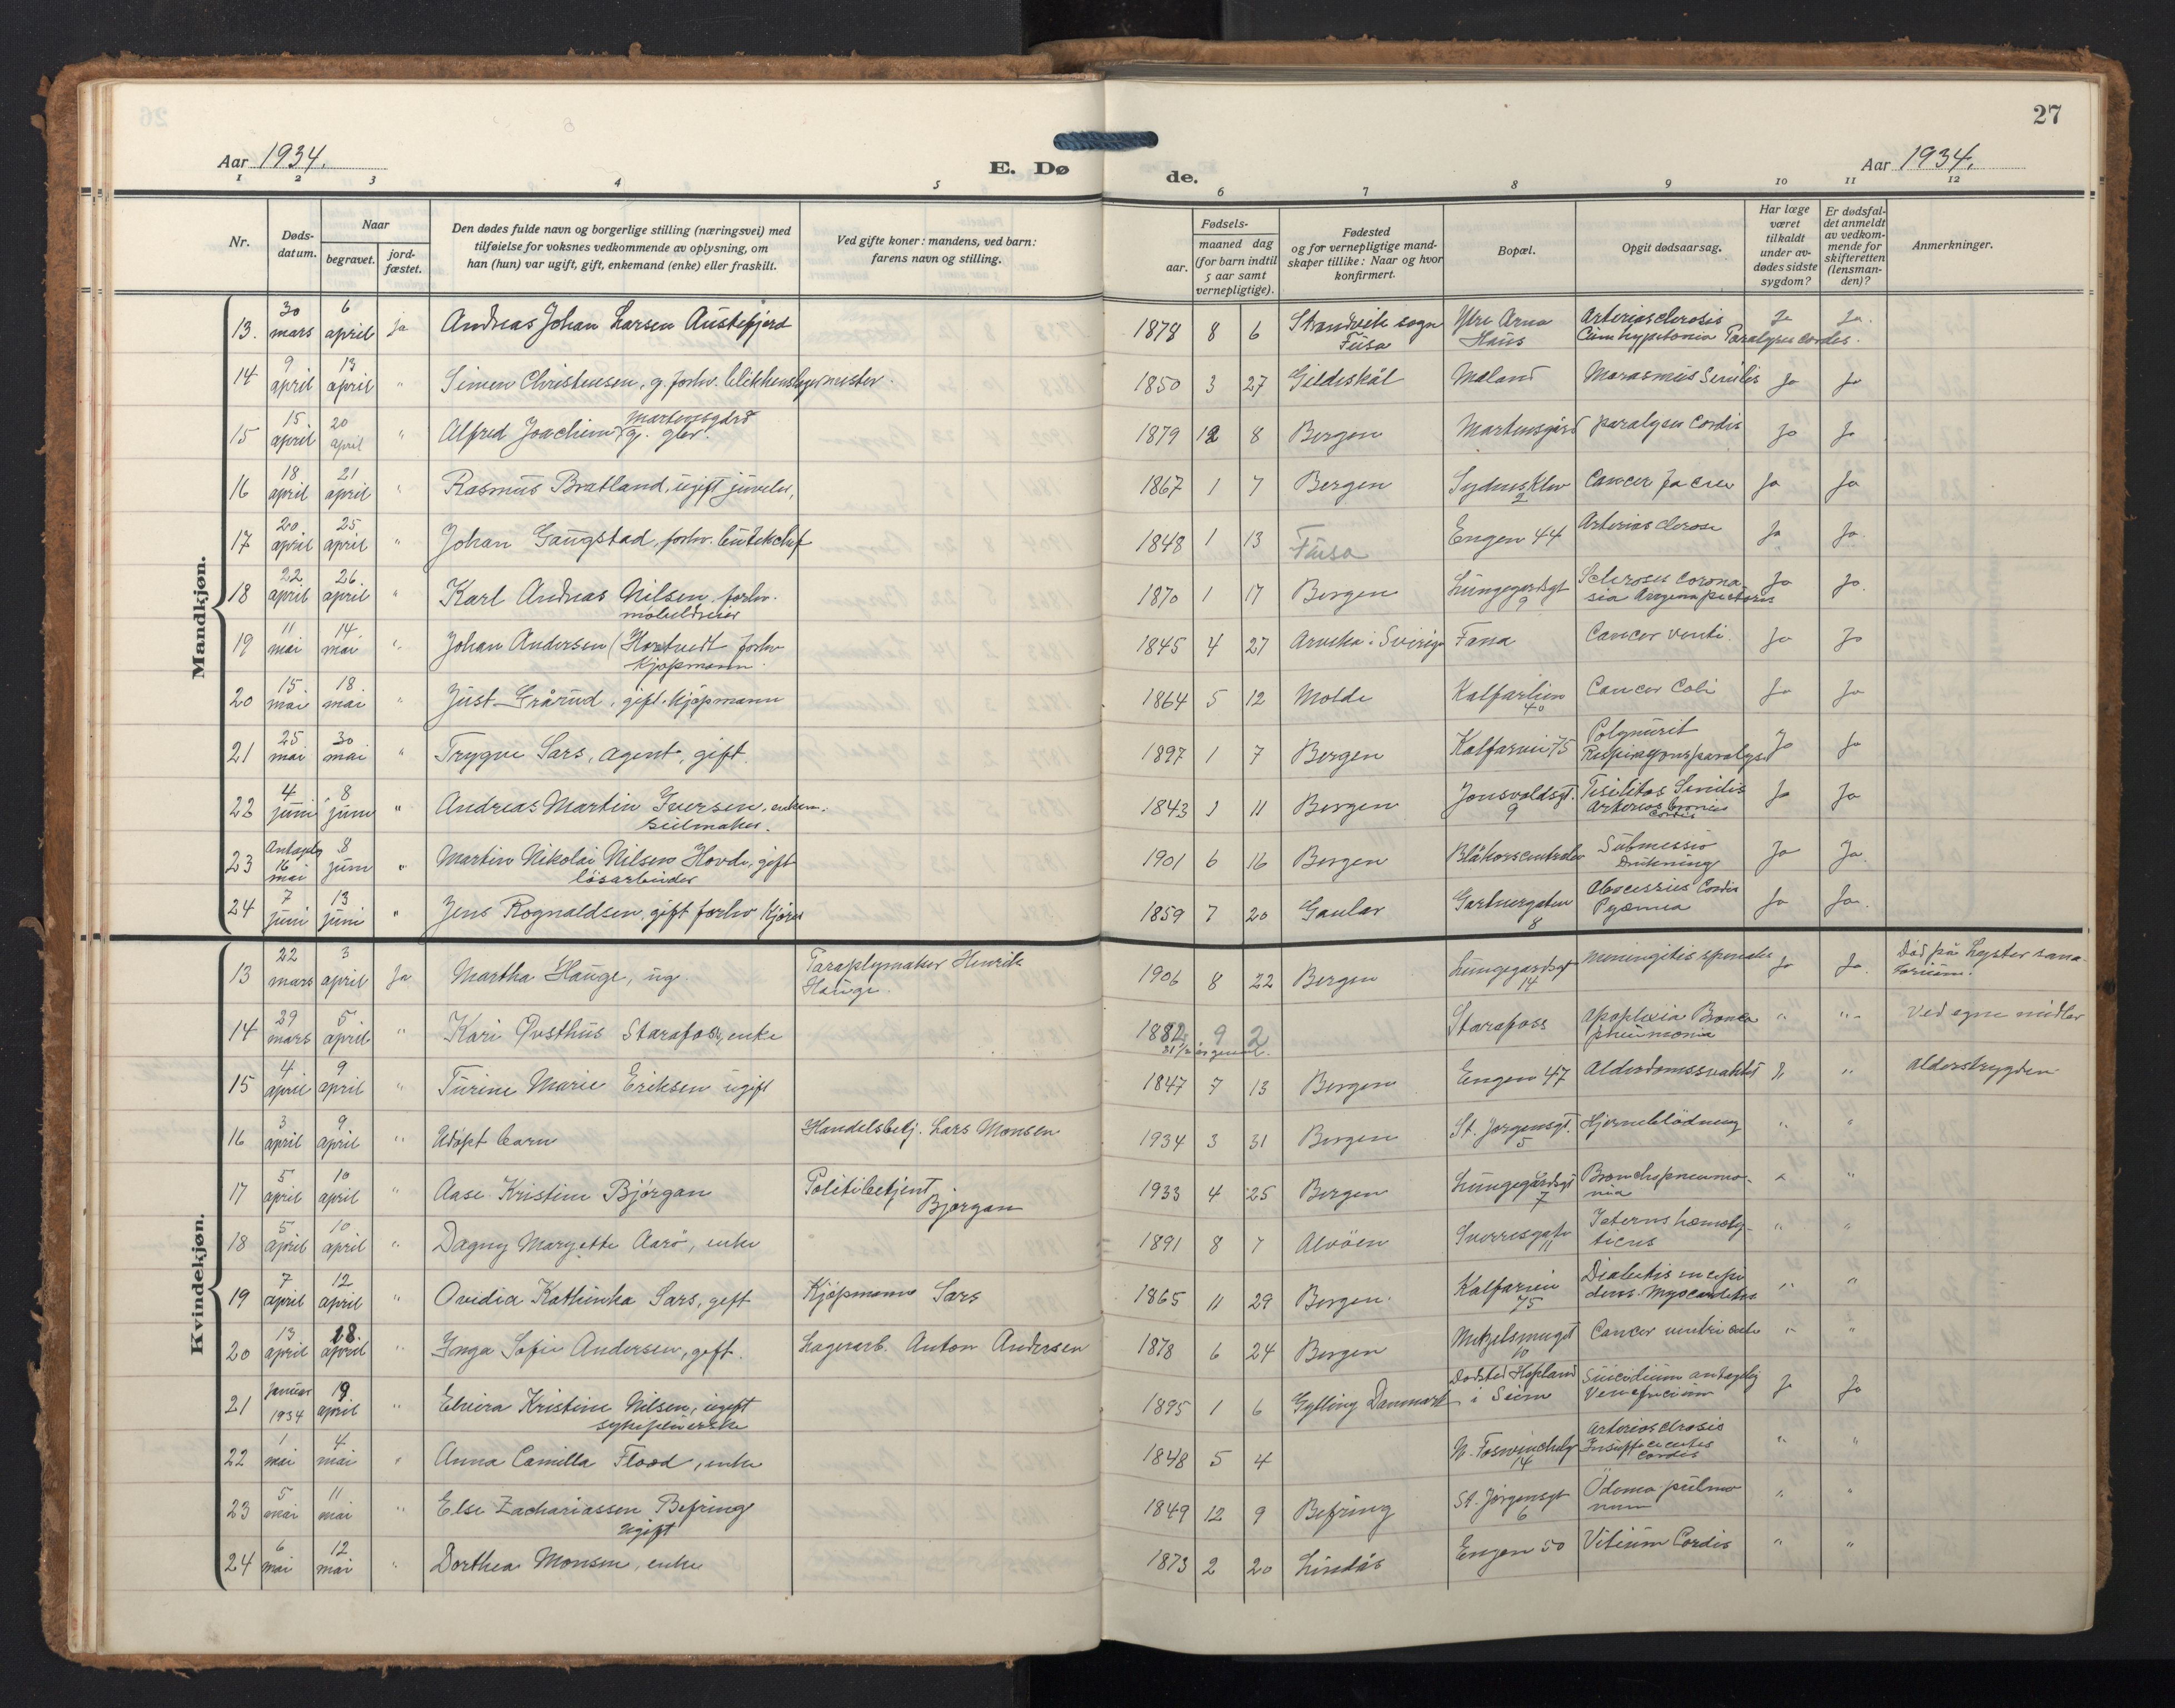 27
Aar 1934.
E. Døde.
Aar 1934.
1 2 3 4 5 6 7 8 9 10 11 12
Nr.
Døds-datum.
Naar
begravet.
jord-fæstet.
Den dødes fulde navn og borgerlige stilling (næringsvei) med
tilføielse for voksnes vedkommende av oplysning, om
han (hun) var ugift, gift, enkemand (enke) eller fraskilt.
Ved gifte koner: mandens, ved barn:
farens navn og stilling.
Fødsels-
aar.
maaned dag
(for barn indtil
5 aar samt
vernepligtige).
Fødested
og for vernepligtige mand-
skaper tillike: Naar og hvor
konfirmert.
Bopæl.
Opgit dødsaarsag.
Har læge
været
tilkaldt
under av-
dødes sidste
sygdom?
Er dødsfal-
det anmeldt
av vedkom-
mende for
skifteretten
(lensman-
den)?
Anmerkninger.
Mandkjøn.
13. 30 mars 6 april ja Andreas Johan Larsen Austefjord 1878 8 6 Strandvik sogn Fusa Ytre Arna Haus Arteriosclerosis Cum hypertonia Paralysis cordis. Ja Ja.
14 9 april 13 april " Simen Christensen, g. forhv. blikkenslagermester. 1850 3 27 Gildeskål Maland Marasmus Senilis Ja Ja
15 15 april 20 april " Alfred Joachim Martensgård g. gler. 1879 12 8 Bergen Martensgård paralysis Cordis Ja Ja
16 18 april 21 april " Rasmus Bratland, ugift juveler, 1867 1 7 Bergen Sydnesklev 2 Cancer Ja Ja
17 20 april 25 april " Johan Gaugstad, forhv. butikchef 1848 1 13 Fusa Engen 44 Arteriosclerose Ja Ja.
18 22 april 26. april " Karl Andreas Nilsen forhv. 1870 1 17 Bergen Lungegårdsgt 9 Sclerosis corona Angina pectoris Ja Ja.
19 11 mai 14 mai " Johan Andersen (Hortvedt forhv kjøpmann. 1845 4 27 Arvika i Sverige Fana Cancer ventr. Ja Ja
20 15 mai 18 mai " Just Grårud, gift. kjøpmann 1864 5 12 Molde Kalfarlien 40 Cancer Coli Ja Ja
21 25 mai 30 mai " Trygve Sars, agent, gift. 1897 1 7 Bergen Kalfarvei 75 Polynurit Respirasjonsparalyse Ja Ja
22 4 juni 8 juni " Andreas Martin Iversen, enkem. seilmaker. 1843 1 11 Bergen Jonsvoldsgt. 9 Senilis Ja Ja
23 Antagelig 16 mai 8 juni " Martin Nikolai Nilsen Hovde, gift løsarbeider 1901 6 16 Bergen Blåkorscentralen Submersio Drukning Ja Ja.
24 7 juni 13 juni " Jens Rognaldsen, gift forhv kjøpm 1859 7 20 Gaular Gartnergaten 8 Cordis Pyæmia Ja Ja.
Kvindekjøn.
13 22 mars 3 april Ja Martha Hauge, ug. Paraplymaker Henrik Hauge. 1906 8 22 Bergen Lungegårdsgt 14 Meningitis spinalis Ja Ja. Død på Lyster sanatorium.
14 29 mars 5 april " Kari Øvsthus Starafoss, enke 1882 9 2 Starafoss Apoplexia Bronco pneumonia " " Ved egne midler
15 4 april 9 april " Turine Marie Eriksen ugift 1847 7 13 Bergen Engen 47 Alderdomssvakhet " " alderstrygden
16 3 april 9 april " Udøpt barn Handelsbetj. Lars Monsen 1934 3 31 Bergen St. Jørgensgt. 5 Hjerneblødning " "
17 5 april 10 april " Aase Kristine Bjørgan Politibetjent Bjørgan 1933 4 25 Bergen Lungegårdsgt 7 Bronchopneumonia " "
18 5 april 10 april " Dagny Margette Aarø, enke 1891 8 7 Alvøen Sverresgate 11 Icterus hæmolyticus " "
19 7 april 12 april " Ovidia Kathinka Sars, gift Kjøpmann Sars 1865 11 29 Bergen. Kalfarvei 75 Diabetis incipidens. Myocarditis " "
20 13 april 18. april " Inga Sofie Andersen, gift. Lagerarb. Anton Andersen 1878 6 24 Bergen 10 Cancer ventriculi " "
21 Januar 1934 19 april " Elvira Kristine Nilsen, ugift sykepleierske 1895 1 6 Gylling Danmark Dødsted Hopland i Seim Suicidium antagelig Veneficium Ja Ja
22 1 mai 4 mai " Anna Camilla Flood, enke 1848 5 4 14 Arteriosclrosis Cordis " "
23 5 mai 11 mai " Else Zachariassen Befring ugift 1849 12 9 Befring St. Jørgensgt 6 Ödema pulmonum " "
24 6 mai 12 mai " Dorthea Monsen, enke 1873 2 20 Lindås Engen 50 Vitium Cordis " "